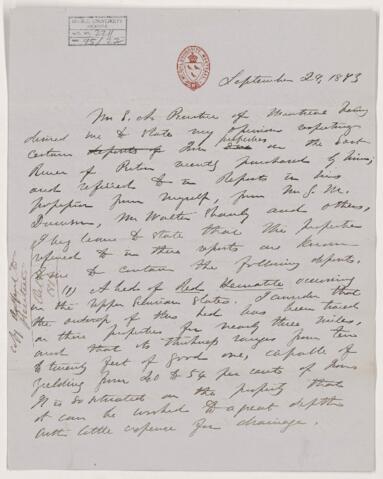 McGILL UNIVERSITY
ARCHIVES
ACC. NO. 2211
REF. 95/22
September 29, 1873
Mr S. A. Prentice of Montreal having
desired me to state my opinion respecting
certain deposits of Iron properties on the East
River of Pictou recently purchased by him,
and referred to in Reports in his
possession from myself, from Mr G. M.
Dawson, Mr Walter Shanly and others,
I beg leave to state that the properties
referred to in these reports are known
to me to contain the following deposits.
(1) A bed of Red Hematite occurring
in the Upper Silurian Slates. I consider that
the outcrop of this bed has been traced
on these properties for nearly three miles,
and that its thickness ranges from ten
to twenty feet of good ore, capable of
yielding from 40 to 54 per cent of Iron
It is so situated on the property that
it can be worked to a great depth
with little expense for drainage.
Copy Report to
Prentice